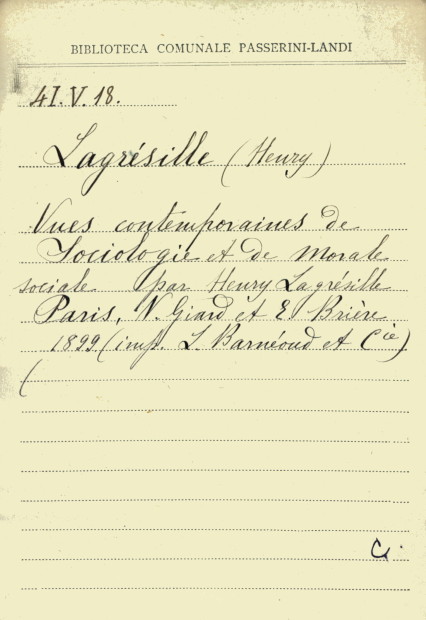 BIBLIOTECA COMUNALE PASSERINI-LANDI
4I.V.18.
Lagrésille (Henry)
Vues contemporaines de
Sociologie et de Morale
sociale par Henry Lagrésille
Paris, V. Giard et E. Brière
1899 (imp. L. Barnéoud et Cie)
(
C.